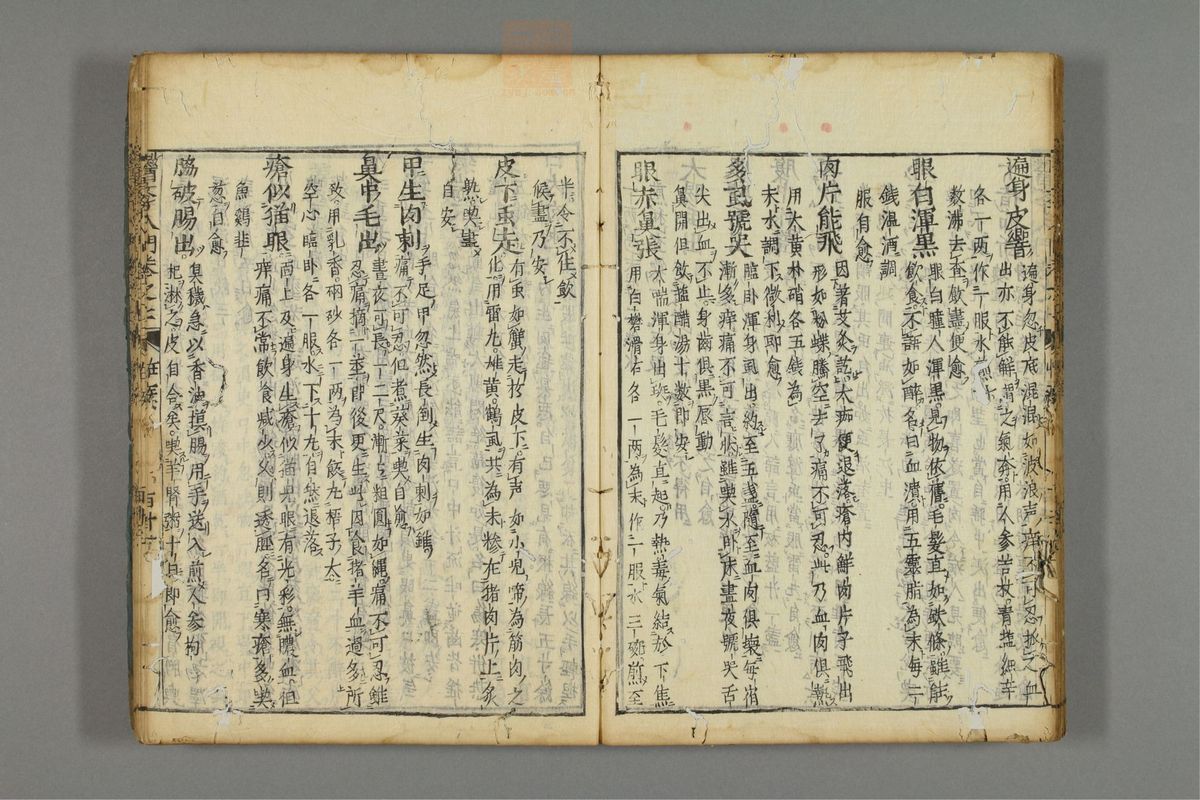 遍身皮響 遍身忽皮底混混如波浪声痒不可忍抓之血
出亦不能解謂之氣奔用人參苦杖青鹽細辛
各一两作一服水煎
数沸去查飲盡便愈
眼白渾黒 眼白瞳人渾黒見物依舊毛髪直如鉄條雖能
飲食不語如醉名曰血潰用五靈脂為末每二
錢温酒調
服自愈
肉片能飛 因著艾灸訖火痂便退落瘡内鮮肉片子飛出
形如蝶騰空去了痛不可忍此乃血肉俱熱
用大黄朴硝各五錢為
末水調下微利即愈
多虱號哭 臨卧渾身虱出約至五盞隨至血肉俱壊每宿
漸多痒痛不可言状雖喫水卧床晝夜號哭舌
尖出血不止身歯俱黒唇動
鼻開但飲塩醋湯十数即安
眼赤鼻張 大喘渾身出斑毛髪直起乃熱毒氣結於下焦
用白礬滑石各一两為末作一服水三碗煎至
半令不住飲
候盡乃安
皮下虫走 有虫如蟹走於皮下有声如小児啼為筋肉之
化用雷丸雄黄共為末糝在猪肉片上炙
熟喫盡
自安
甲生肉刺 手足甲忽然長倒生肉刺如錐
痛不可忍但煮葵菜喫自愈
鼻中毛出 晝夜可長一二尺漸粗圓如縄痛不可忍雖
忍痛摘一莖即後更生此因食猪羊血過多所
致用乳香硇砂各一两為末飯丸梧子大
空心臨卧各一服水下十丸自然退落
瘡似猫眼 面上及遍身生瘡似猫児眼有光彩無膿血但
痒痛不常飲食減少久則透脛名曰寒瘡多喫
魚鷄韭
葱自愈
脇破腸出 臭穢急以香油摸腸用手送入煎人參枸
杞淋之皮自合矣喫羊腎粥十日即愈